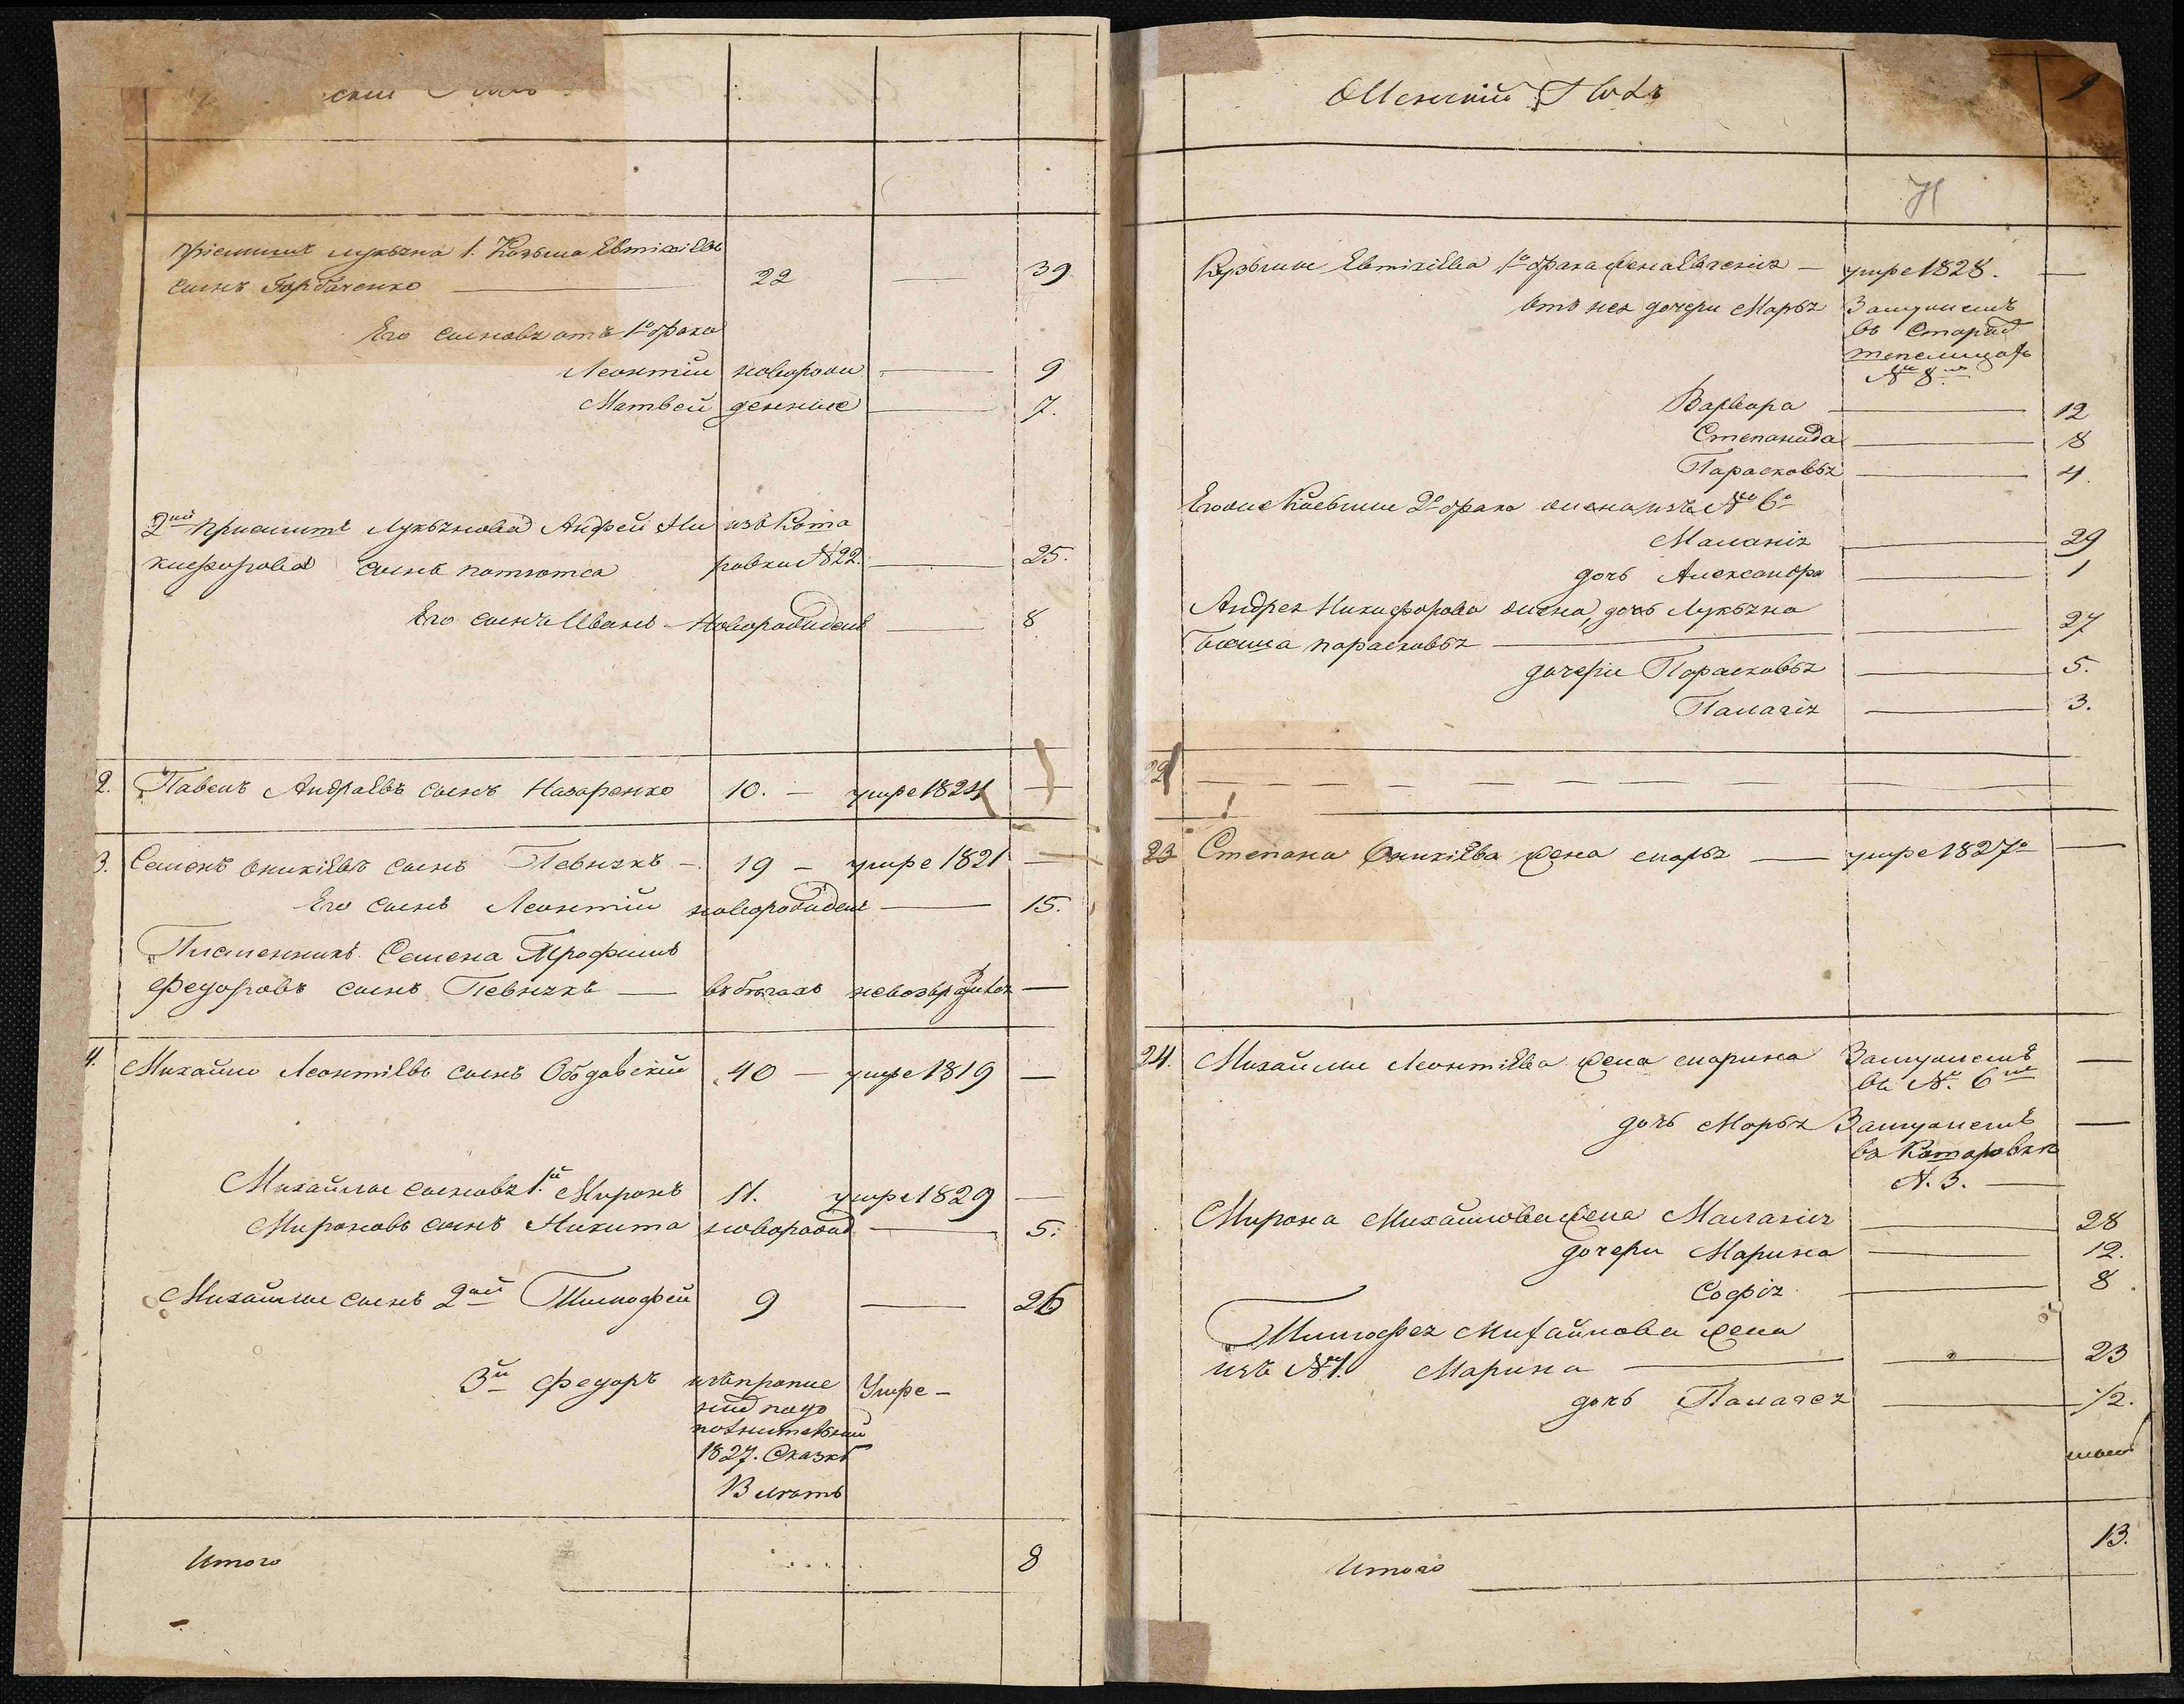 Пріемышъ Лукьяна 1. Козьма Евтихіевъ
сынъ Горбаченко 22 39
Его сыновя отъ 1º брака
Леонтій новорож 9
Матвей денные 7.
2й пріемышъ Лукьяновъ Андрей Ни изъ Кома
кифоровъ сынъ ровки №22. 25.
Его сынъ Иванъ новорожденъ 8
2. Павелъ Андреевъ сынъ Назаренко 10. умре 1824
3. Семенъ Оникіевъ сынъ Певнякъ 19 умре 1821
Его сынъ Леонтій новорожденъ 15.
Племенникъ Семена Трофимъ
Федоровъ сынъ Певнякъ въ бѣгахъ
4. Михайло Леонтіевъ сынъ 40 умре 1819
Михайлы сыновя 1й Миронъ 11. умре 1829
Мироновъ сынъ Никита новорожд 5.
Михайлы сынъ 2й Тимофей 9 26
3й Федоръ изъ пропис Умре
ной подо
полнительной
1827. Сказкѣ
13 лѣтъ
Итого 8
Женскій Полъ
9
Козьмы Евтихіева 1º брака жена Евгенія умре 1828.
отъ нея дочери Марья Замужемъ
въ Старой
№ 8
Варвара 12
Степанида 8
Парасковья 4.
Его же Козьмы 2º брака жена изъ № 6º
Маланія 29
дочь Александра 1
Андрея Никифорова жена, дочь Лукьяна
Парасковья 27
дочери Парасковья 5.
Палагія 3.
22
23 Степана Оникіева жена Марья умре 1827º
24. Михайлы Леонтіева жена Марина Замужемъ
въ №. 6
дочь Марья Замужемъ
въ Комаровкѣ
№. 3.
Мирона Михайлова жена Маланія 28
дочери Марина 12.
Софія 8.
Тимофея Михайлова жена
изъ №1. Марина 23
дочь Палагея 1/2.
Итого 13.